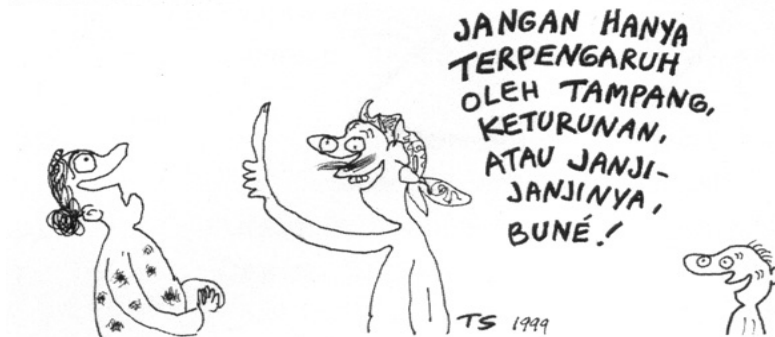 JANGAN HANYA
TERPENGARUH
OLEH TAMPANG,
KETURUNAN,
ATAU JANJI-
JANJINYA,
BUNÉ!
TS 1999